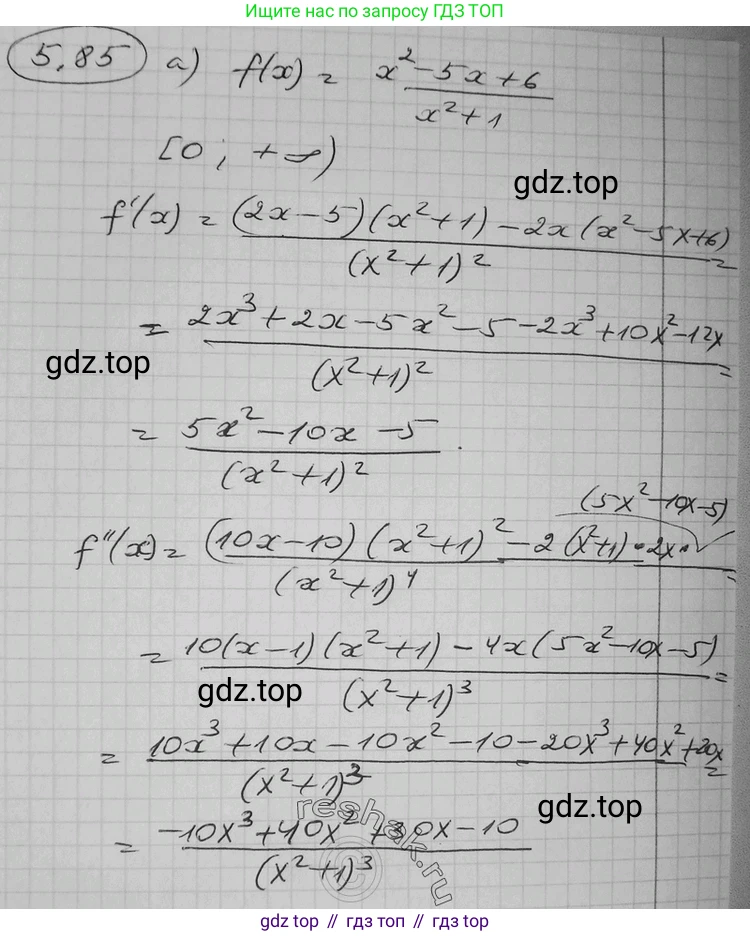 Ищите нас по запросу ГДЗ ТОП
5,85 а) f(x) = (x² - 5x + 6)/(x² + 1)
[0; +∞)
gdz.top
f'(x) = ((2x - 5)(x² + 1) - 2x(x² - 5x + 6))/(x² + 1)² =
= (2x³ + 2x - 5x² - 5 - 2x³ + 10x² - 12x)/(x² + 1)² =
gdz.top
= (5x² - 10x - 5)/(x² + 1)².
(5x² - 10x - 5)
f''(x) = ((10x - 10)(x² + 1)² - 2(x² + 1)·2x·)/(x² + 1)⁴ =
= (10(x - 1)(x² + 1) - 4x(5x² - 10x - 5))/(x² + 1)³ =
gdz.top
= (10x³ + 10x - 10x² - 10 - 20x³ + 40x² + 20x)/(x² + 1)³ =
gdz.top
reshak.ru
= (-10x³ + 40x² + 30x - 10)/(x² + 1)³
gdz.top // гдз топ // gdz top